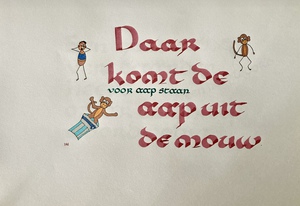 Daar
komt de
voor aap staan
aap uit
de mouw